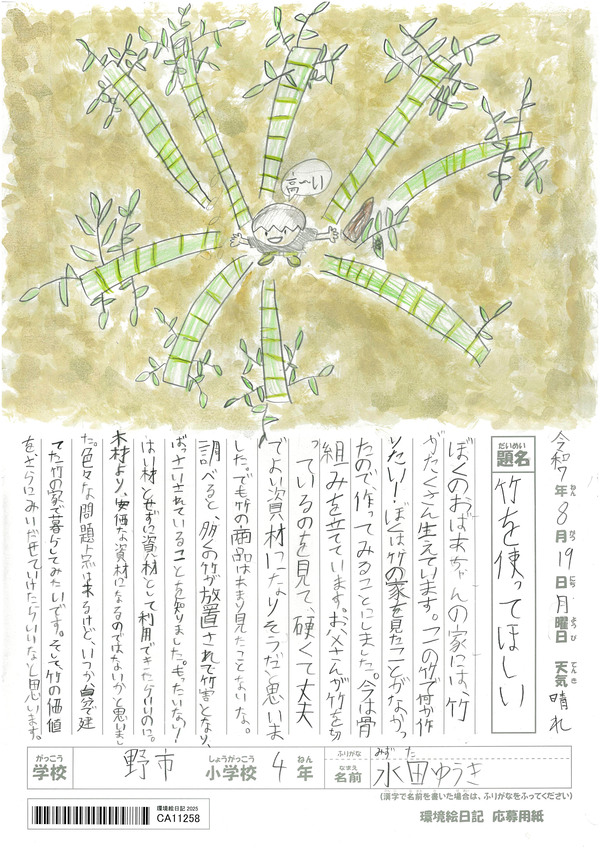 高〜い
令和7年8月19日月曜日 天気 晴れ
ねん がつ にち ようび てんき
だいめい
題名
竹を使ってほしい
ぼくのおばあちゃんの家には、竹
がたくさん生えています。この竹で何か作
りたい！ぼくは竹の家を見たことがなかっ
たので、作ってみることにしました。今は骨
組みを立てています。お父さんが竹を切
っているのを見て、硬くて丈夫
でよい資材になりそうだと思いま
した。でも竹の商品はあまり見たことないな。
調べると、多くの竹が放置されて竹害となり、
ばっさいされていることを知りました。もったいない！
はい材とせずに資材として利用できたらいいのに。
木材より、安価な資材になるのではないかと思いまし
た。色々な問題点は来るけど、いつか自分で建
てた竹の家で暮らしてみたいです。そして竹の価値
をさらにみいだせていけたらいいなと思います。
がっこう
学校
野市
しょうがっこう
小学校
4
ねん
年
ふりがな
みずた
なまえ
名前
水田ゆうき
(漢字で名前を書いた場合は、ふりがなをふってください)
環境絵日記 2025
CA11258
環境絵日記 応募用紙